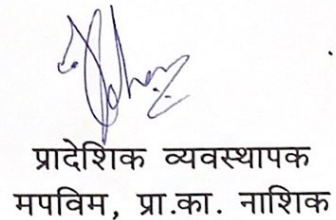 प्रादेशिक व्यवस्थापक
मपविम, प्रा.का. नाशिक